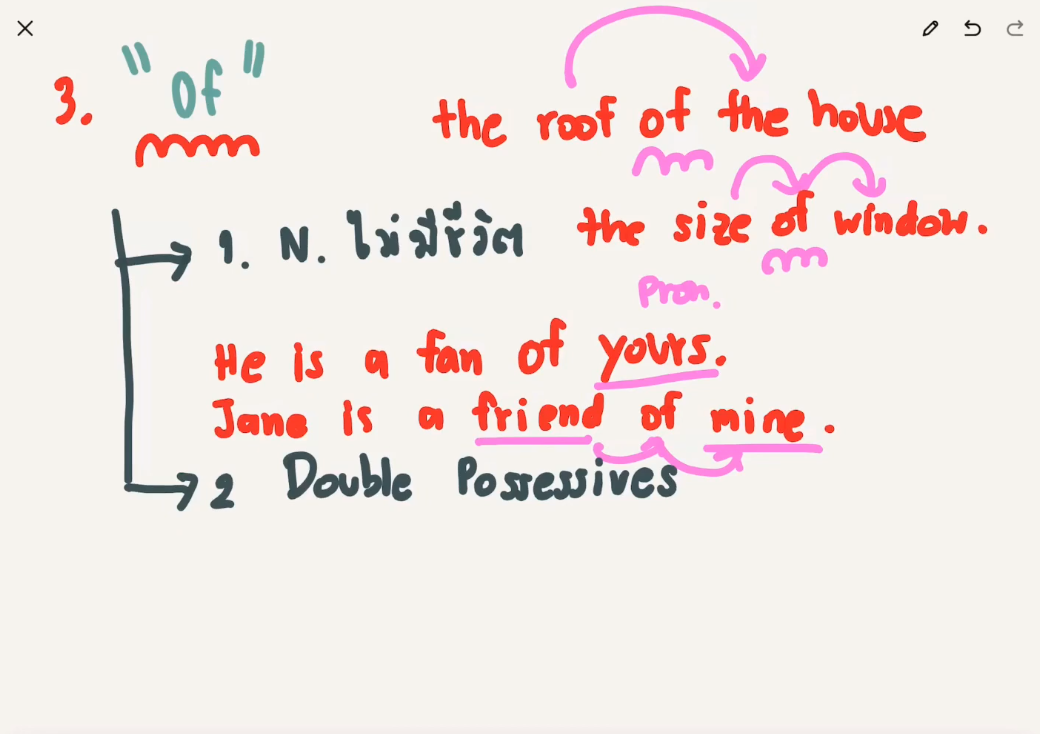 3. "Of"
the roof of the house
the size of window.
1. N. ไม่มีชีวิต
Pron.
He is a fan of yours.
Jane is a friend of mine.
2 Double Possessives